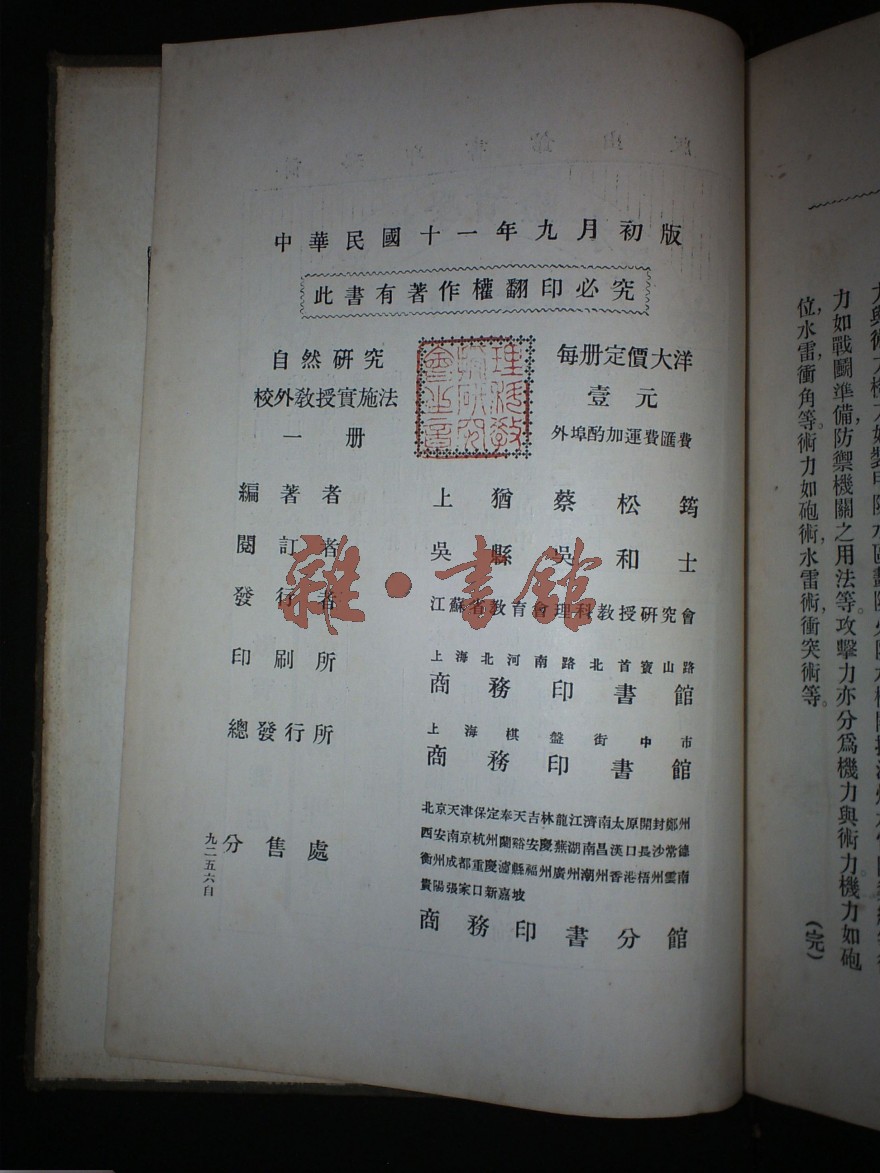 中華民國十一年九月初版
此書有著作權翻印必究
自然研究
校外教授實施法
一册
每册定價大洋
壹元
外埠酌加運費匯費
編著者 上猶蔡松筠
閱訂者 吳縣吳和士
發行者 江蘇省教育會理科教授研究會
印刷所 上海北河南路北首寶山路
商務印書館
總發行所 上海棋盤街中市
商務印書館
分售處
北京天津保定奉天吉林龍江濟南太原開封鄭州
西安南京杭州蘭谿安慶蕪湖南昌漢口長沙常德
衡州成都重慶瀘縣福州廣州潮州香港梧州雲南
貴陽張家口新嘉坡
商務印書分館
九二五六自
雜·書館
力如戰鬭準備,防禦機關之用法等。攻擊力亦分爲機力與術力。機力如砲
位,水雷,衝角等。術力如砲術,水雷術,衝突術等。
(完)